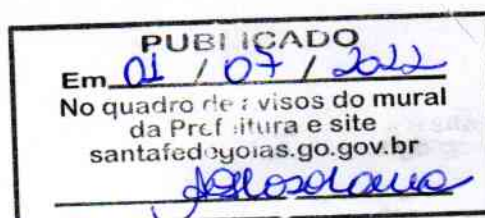 PUBLICADO
Em 01 / 07 / 2022
No quadro de avisos do mural
da Prefeitura e site
santafedegoias.go.gov.br